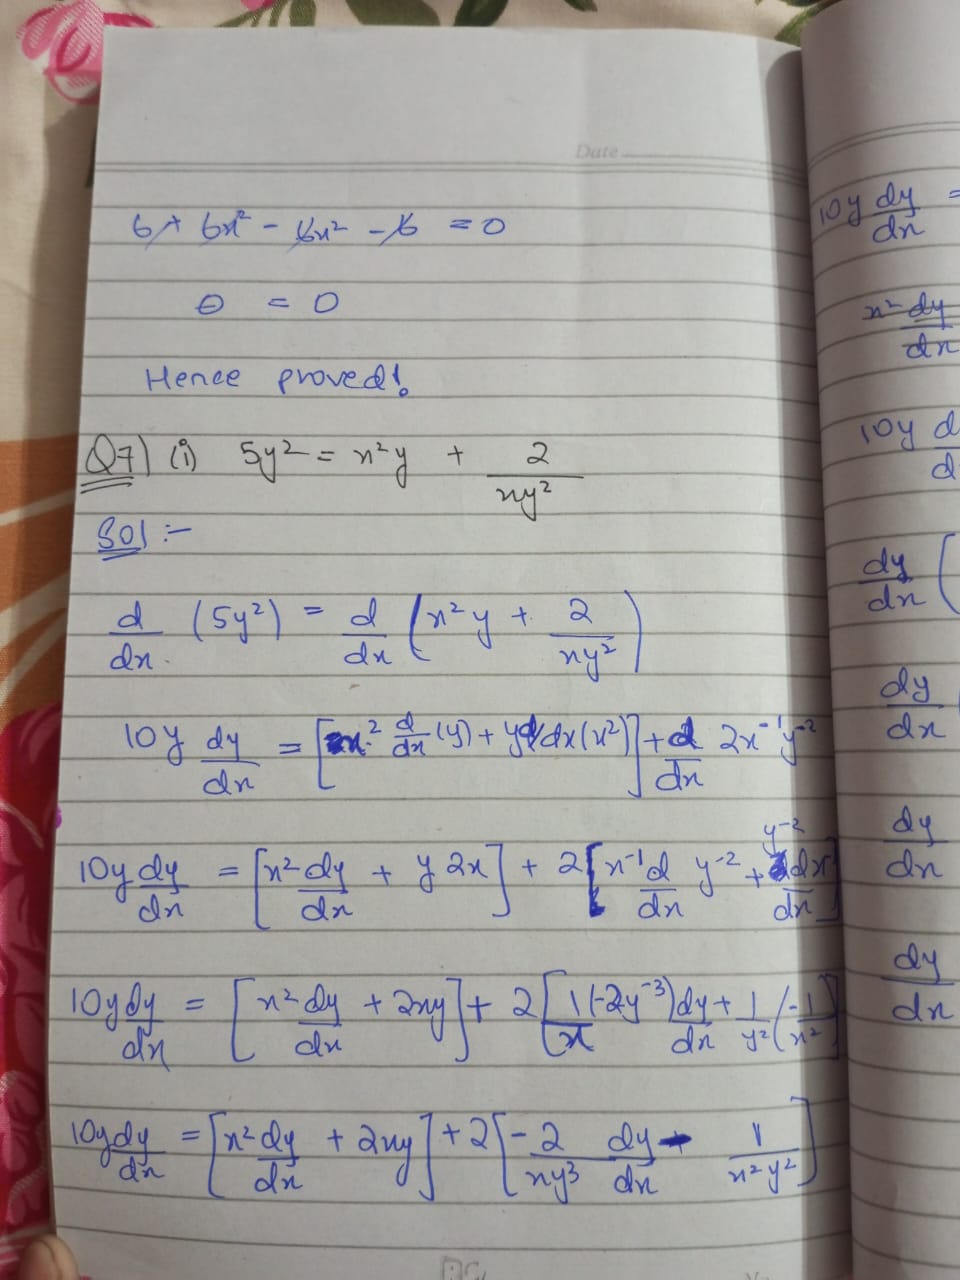 Date
6 + 6x² - 6x² - 6 = 0
0 = 0
Hence proved!
Q7) (i) 5y² = x²y + 2/xy²
Sol :-
d/dx (5y²) = d/dx (x²y + 2/xy²)
10y dy/dx = [x² d/dx (y) + y d/dx (x²)] + d/dx 2x⁻¹y⁻²
10y dy/dx = [x² dy/dx + y 2x] + 2[x⁻¹ d/dx y⁻² + y⁻² dx⁻¹/dx]
10y dy/dx = [x² dy/dx + 2xy] + 2[1/x (-2y⁻³) dy/dx + 1/y² (-1/x²)]
10y dy/dx = [x² dy/dx + 2xy] + 2[-2/xy³ dy/dx - 1/x²y²]
10y dy/dx =
x² dy/dx
10y d/d
dy/dx (
dy/dx
dy/dx
dy/dx